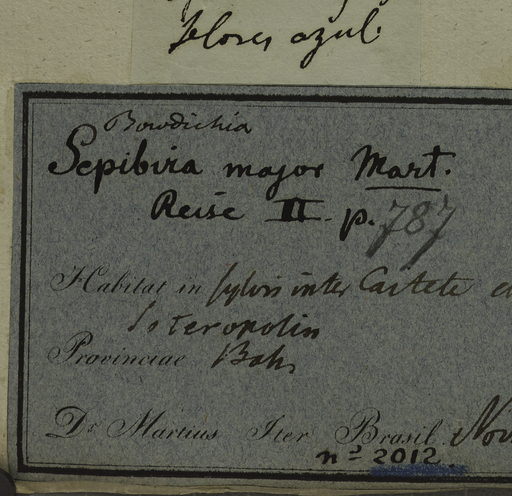 flores azul.
Bowdichia
Sepibira major Mart.
Reise II. p. 787
Habitat in sylvis inter Caitete e
Provinciae Bah.
Dr. Martius Iter Brasil. Nov
nº 2012